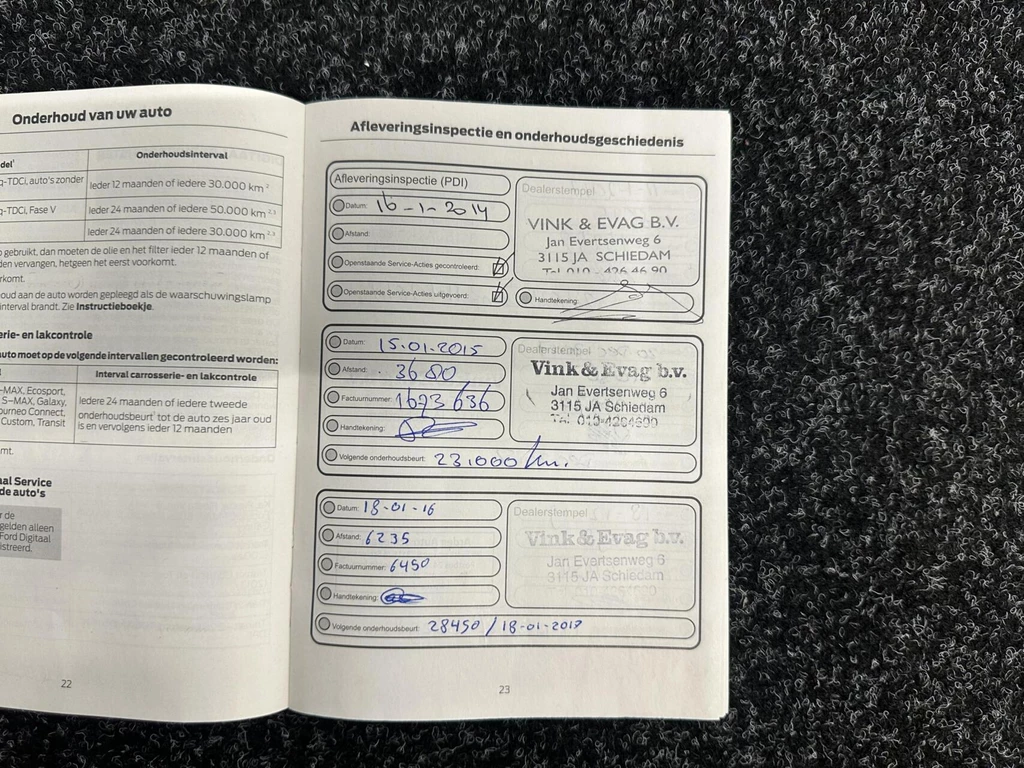 Onderhoud van uw auto
del¹
Onderhoudsinterval
q-TDCi, auto's zonder
Ieder 12 maanden of iedere 30.000 km ²
q-TDCi, Fase V
Ieder 24 maanden of iedere 50.000 km ²,³
Ieder 24 maanden of iedere 30.000 km ²,³
gebruikt, dan moeten de olie en het filter ieder 12 maanden of
den vervangen, hetgeen het eerst voorkomt.
rkomt.
oud aan de auto worden gepleegd als de waarschuwingslamp
interval brandt. Zie Instructieboekje.
erie- en lakcontrole
auto moet op de volgende intervallen gecontroleerd worden:
Interval carrosserie- en lakcontrole
-MAX, Ecosport,
S-MAX, Galaxy,
ourneo Connect,
Custom, Transit
Iedere 24 maanden of iedere tweede
onderhoudsbeurt¹ tot de auto zes jaar oud
is en vervolgens ieder 12 maanden
mt.
aal Service
de auto's
r de
gelden alleen
Ford Digitaal
istreerd.
22
Afleveringsinspectie en onderhoudsgeschiedenis
Afleveringsinspectie (PDI)
Datum: 16-1-2014
Afstand:
Openstaande Service-Acties gecontroleerd:
Openstaande Service-Acties uitgevoerd:
Dealerstempel
VINK & EVAG B.V.
Jan Evertsenweg 6
3115 JA SCHIEDAM
Tel 010 - 426 46 90
Handtekening:
Datum: 15-01-2015
Afstand: 3680
Factuurnummer: 1673636
Handtekening:
Volgende onderhoudsbeurt: 23.000 km.
Dealerstempel
Vink & Evag b.v.
Jan Evertsenweg 6
3115 JA Schiedam
Tel. 010-4264690
Datum: 18-01-16
Afstand: 6235
Factuurnummer: 6450
Handtekening:
Volgende onderhoudsbeurt: 28450 / 18-01-2017
Dealerstempel
Vink & Evag b.v.
Jan Evertsenweg 6
3115 JA Schiedam
23